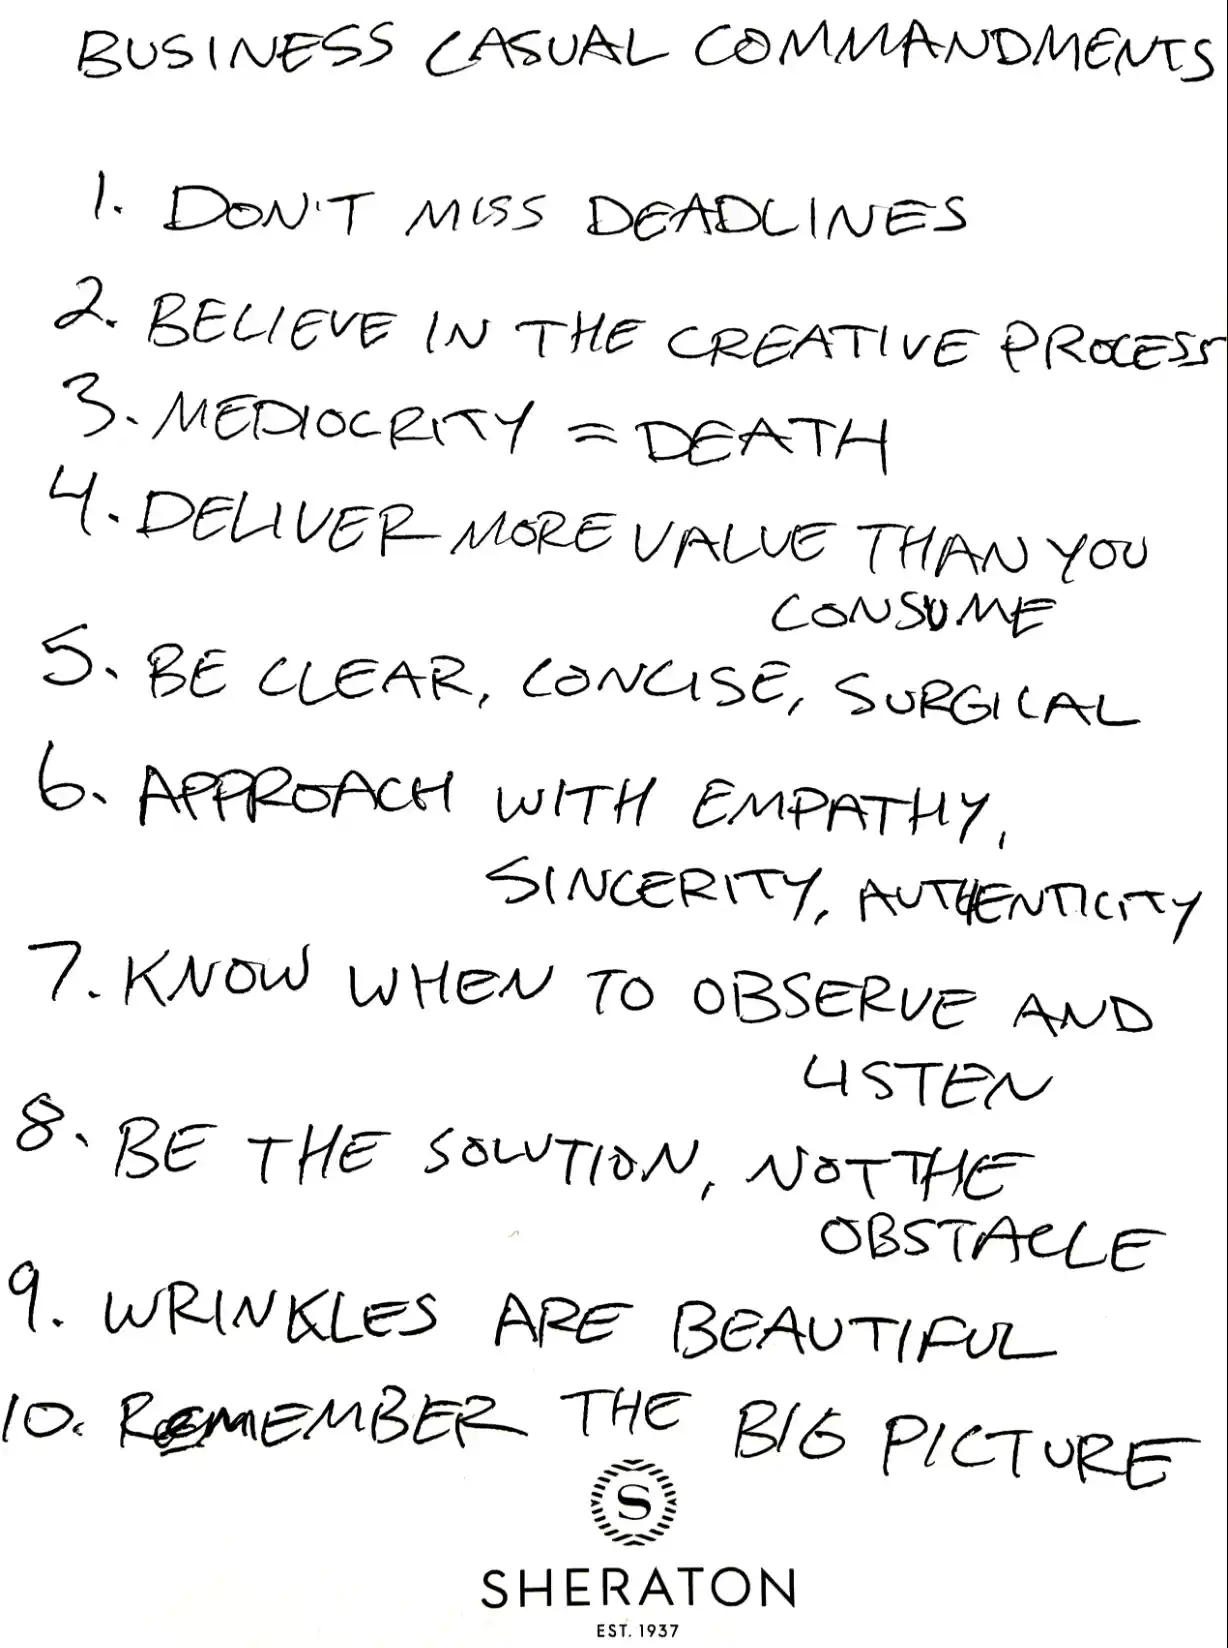 BUSINESS CASUAL COMMANDMENTS
1. DON'T MISS DEADLINES
2. BELIEVE IN THE CREATIVE PROCESS
3. MEDIOCRITY = DEATH
4. DELIVER MORE VALUE THAN YOU
CONSUME
5. BE CLEAR, CONCISE, SURGICAL
6. APPROACH WITH EMPATHY,
SINCERITY, AUTHENTICITY
7. KNOW WHEN TO OBSERVE AND
LISTEN
8. BE THE SOLUTION, NOT THE
OBSTACLE
9. WRINKLES ARE BEAUTIFUL
10. REMEMBER THE BIG PICTURE
S
SHERATON
EST. 1937